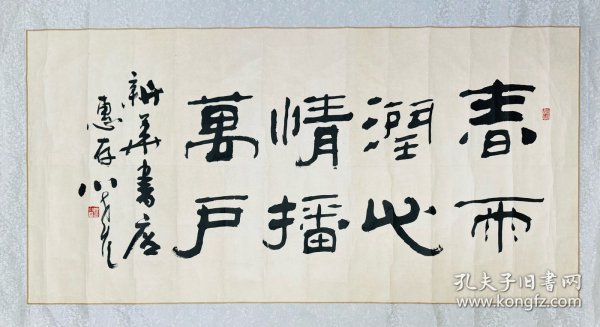 春雨
潤心
情播
萬戶
新華書店
惠存
孔夫子旧书网
www.kongfz.com